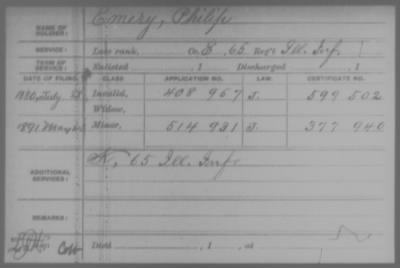 NAME OF SOLDIER: Emery, Philip
SERVICE: Late rank, Co. B, 65 Reg't Ill. Inf.
TERM OF SERVICE: Enlisted , 1 Discharged , 1
DATE OF FILING. CLASS. APPLICATION NO. LAW. CERTIFICATE NO.
1880, July Invalid, 408 957 J. 599 502
Widow,
1891 Minor, 514 921 J. 377 940
ADDITIONAL SERVICES: K, 65 Ill. Inf.
REMARKS:
Died , 1 , at